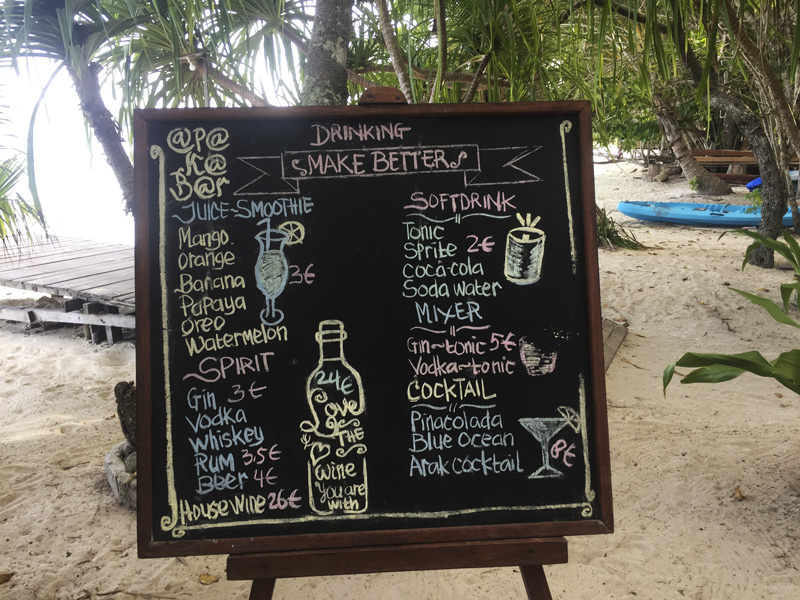 @P@
K@
B@r
DRINKING
MAKE BETTER
JUICE~SMOOTHIE
Mango
Orange
Banana 3€
Papaya
Oreo
Watermelon
~SPIRIT
Gin 3€
Vodka
Whiskey
Rum 3.5€
Beer 4€
House Wine 26€
24€
Love
THE
Wine
You are
with
SOFTDRINK
Tonic
Sprite 2€
Coca-cola
Soda water
MIXER
Gin~tonic 5€
Vodka~tonic
COCKTAIL
Pinacolada
Blue Ocean 8€
Arak cocktail